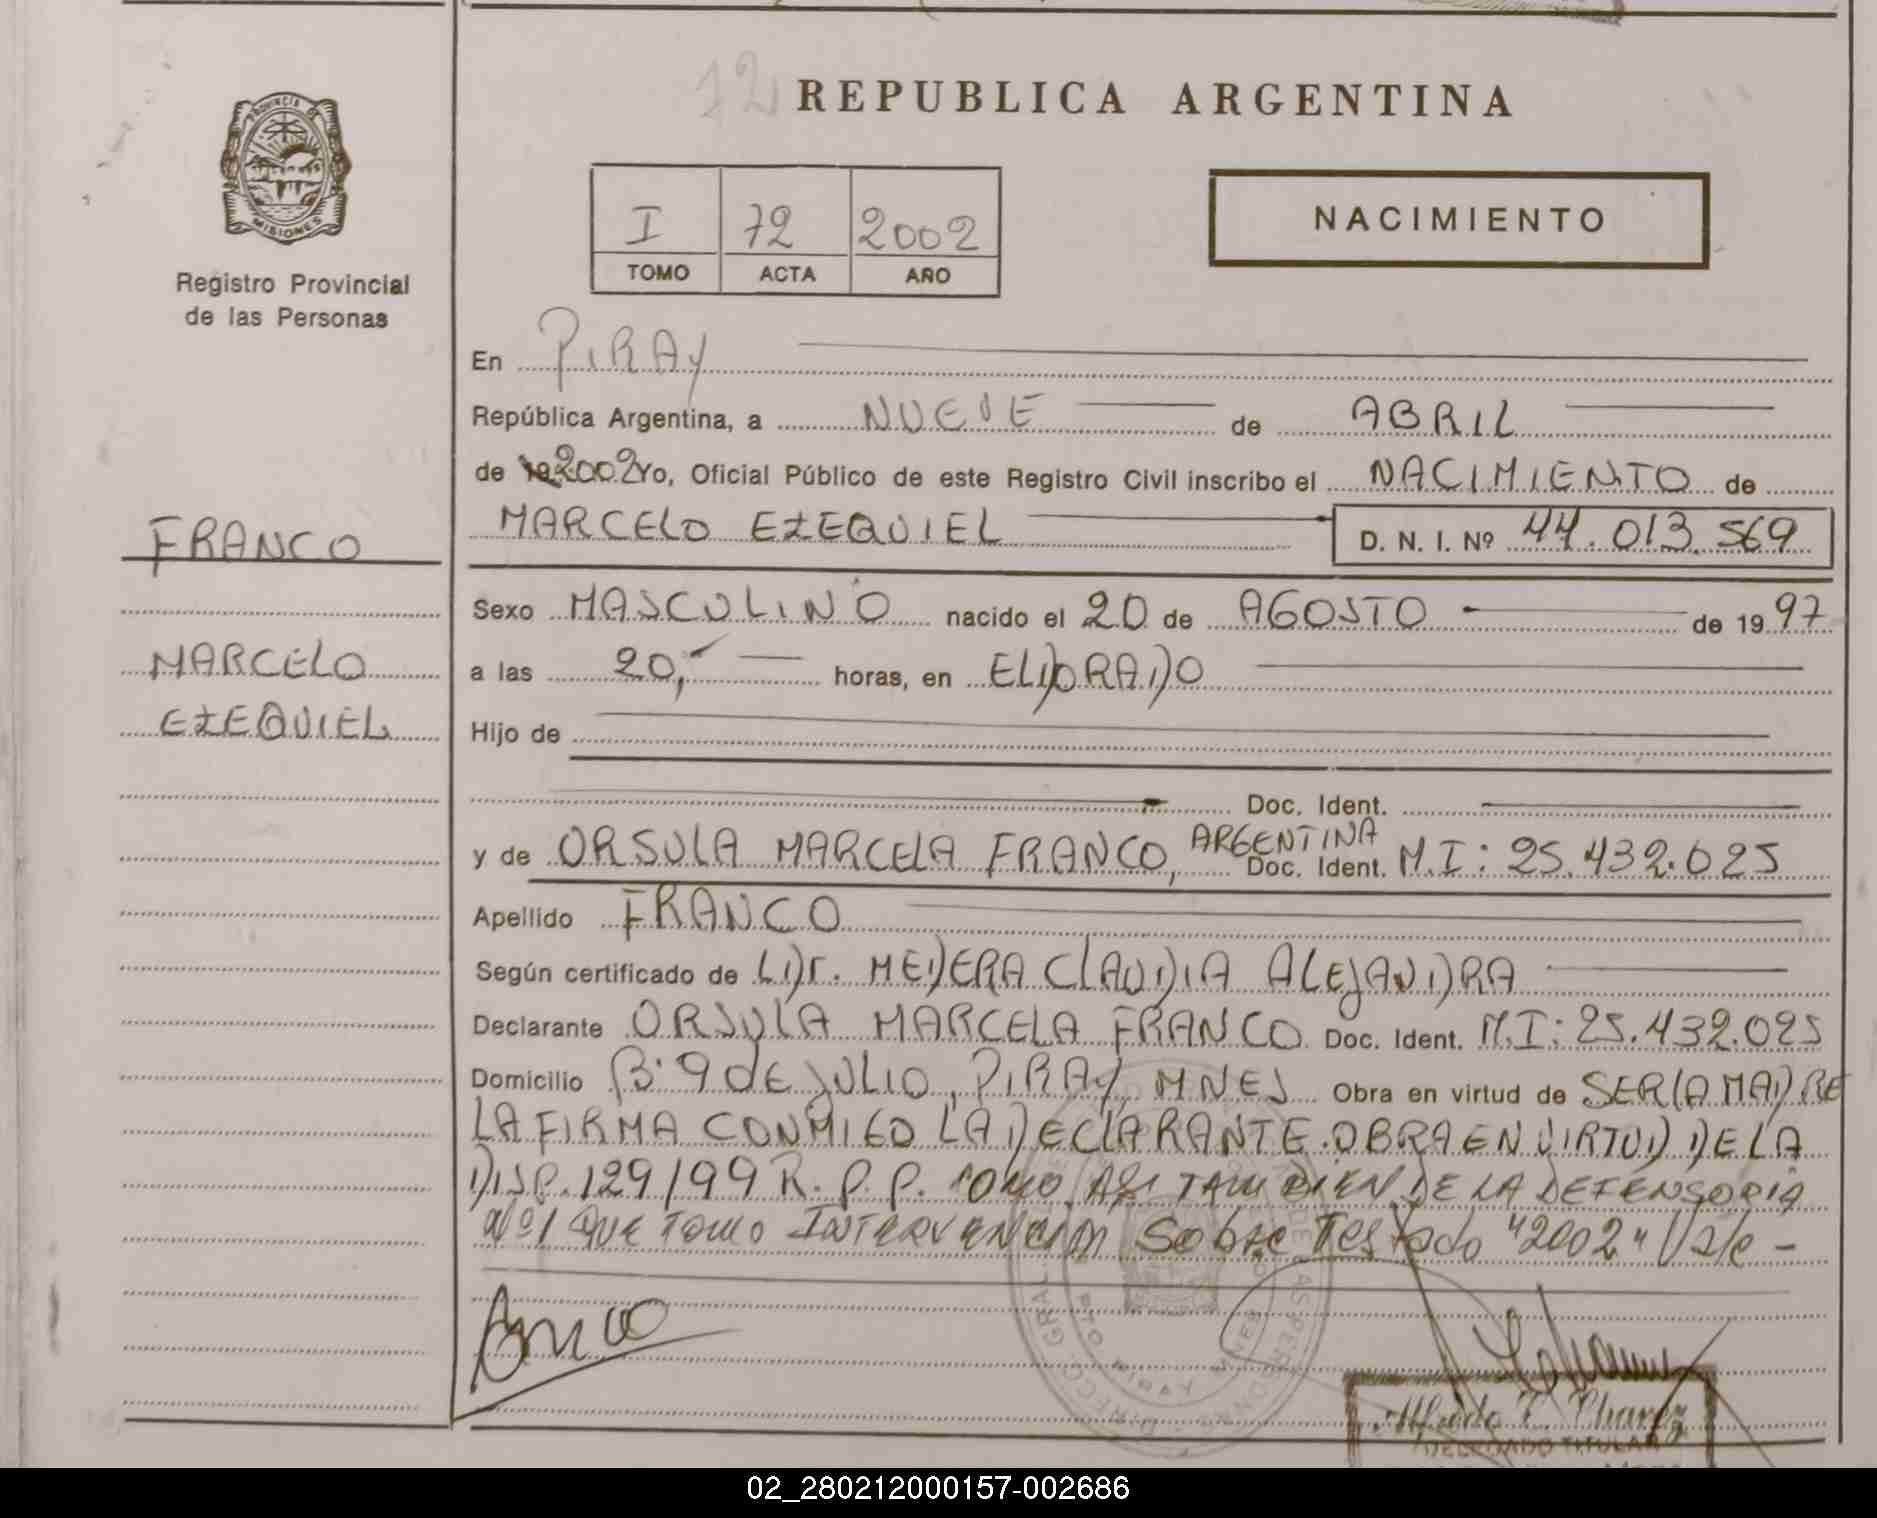 12
REPUBLICA ARGENTINA
PROVINCIA DE
MISIONES
Registro Provincial
de las Personas
I 72 2002
TOMO ACTA AÑO
NACIMIENTO
En PIRAY
República Argentina, a NUEVE de ABRIL
de 19 2002 Yo, Oficial Público de este Registro Civil inscribo el NACIMIENTO de
MARCELO EZEQUIEL D. N. I. Nº 44.013.569
FRANCO
Sexo MASCULINO nacido el 20 de AGOSTO de 1997
MARCELO
a las 20,- horas, en ELDORADO
EZEQUIEL
Hijo de
Doc. Ident.
y de ORSULA MARCELA FRANCO, ARGENTINA Doc. Ident. M.I: 25.432.025
Apellido FRANCO
Según certificado de MEDERA CLAUDIA ALEJANDRA
Declarante ORSULA MARCELA FRANCO Doc. Ident. M.I: 25.432.025
Domicilio Bº 9 DE JULIO, PIRAY, MNES Obra en virtud de SER LA MADRE
LA FIRMA CONMIGO LA DECLARANTE. OBRA EN VIRTUD DE LA
DISP. 129/99 R. P. P. COMO ASI TAMBIEN DE LA DEFENSORIA
Nº1 QUE TOMO INTERVENCION Sobre Testado "2002" Vale -
Alfredo Chavez
DELEGADO TITULAR
02_280212000157-002686